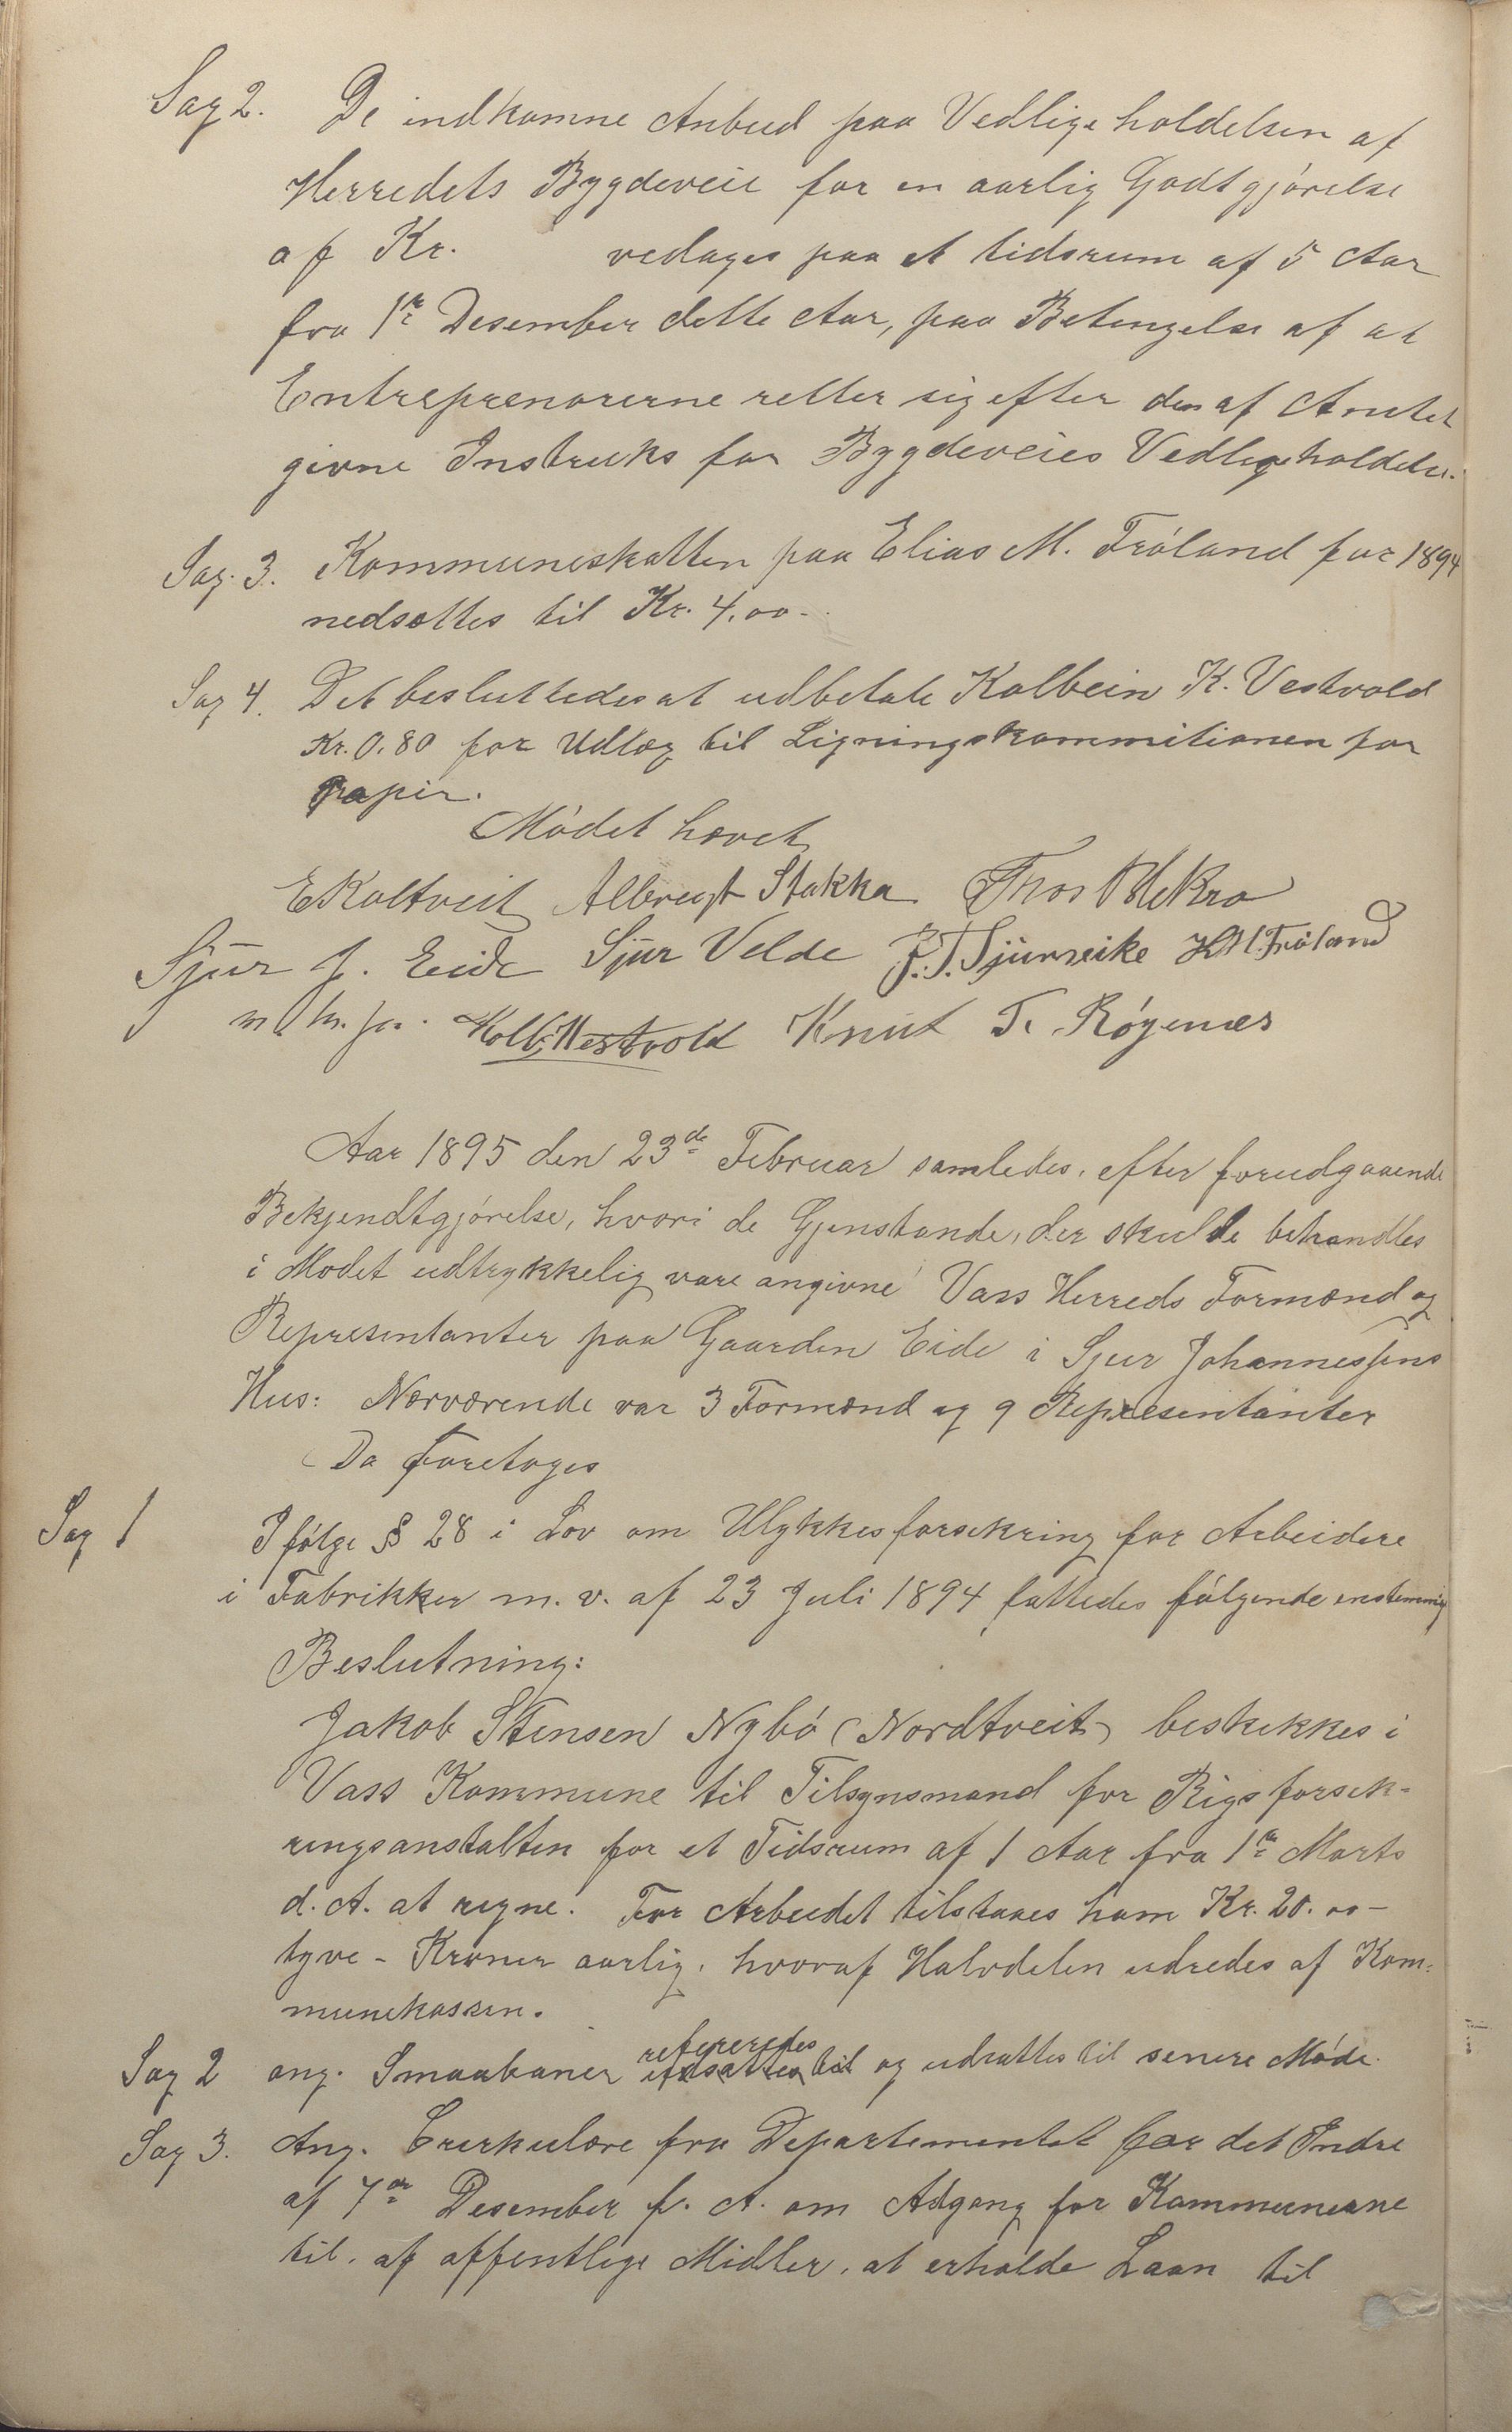 Sag 2. De indkomne Anbud paa Vedligeholdelsen af
Herredets Bygdeveie for en aarlig Godtgjórelse
af Kr. vedages paa et tidsrum af 5 Aar
fra 1ste Desember dette Aar, paa Betengelse af at
Entreprenorerne retter sig efter den af Amtet
givne Instruks for Bygdeveies Vedligeholdelse.
Sag. 3. Kommuneskatten paa Elias M. Fróland for 1894
nedsættes til Kr. 4.00.
Sag 4. Det besluttedes at udbetale Kolbein K. Vestvold
Kr. 0.80 for Udlæg til Ligningskommitionen for
Papir.
Módet hævet
E Koltveit Albregt Stakka Thos
Sjur J. Eide Sjur Velde J. T. Sjurseike H M. Fróland
Kolb. Westvold Knut T. Røgenæs
Aar 1895 den 23de Februar samledes, efter forudgaaende
Bekjendtgjórelse, hvori de Gjenstande, der skulde behandles
i Modet udtrykkelig vare angivne Vass Herreds Formænd og
Representanter paa Gaarden Eide i Sjur Johannessens
Hus: Nærværende var 3 Formænd og 9 Representanter
Da foretoges
Sag 1 Ifólge § 28 i Lov om Ulykkesforsekring for Arbeidere
i Fabrikker m. v. af 23 Juli 1894 fattedes fólgende enstemmig
Beslutning:
Jakob Stensen Nybó (Nordtveit) beskikkes i
Vass Kommune til Tilsynsmand for Rigsforsek-
ringsanstalten for et Tidsrum af 1 Aar fra 1ste Marts
d. A. at regne. For Arbeidet tilstaaes ham Kr. 20.00 –
tyve – Kroner aarlig, hvoraf Halvdelen udredes af Kom-
munekassen.
Sag 2 ang. Smaabaner refereredes og udsattes til senere Móde.
Sag 3. Ang. Cirkulære fra Departementet for det Indre
af 7de Desember f. A. om Adgang for Kommunerne
til, af offentlige Midler, at erholde Laan til